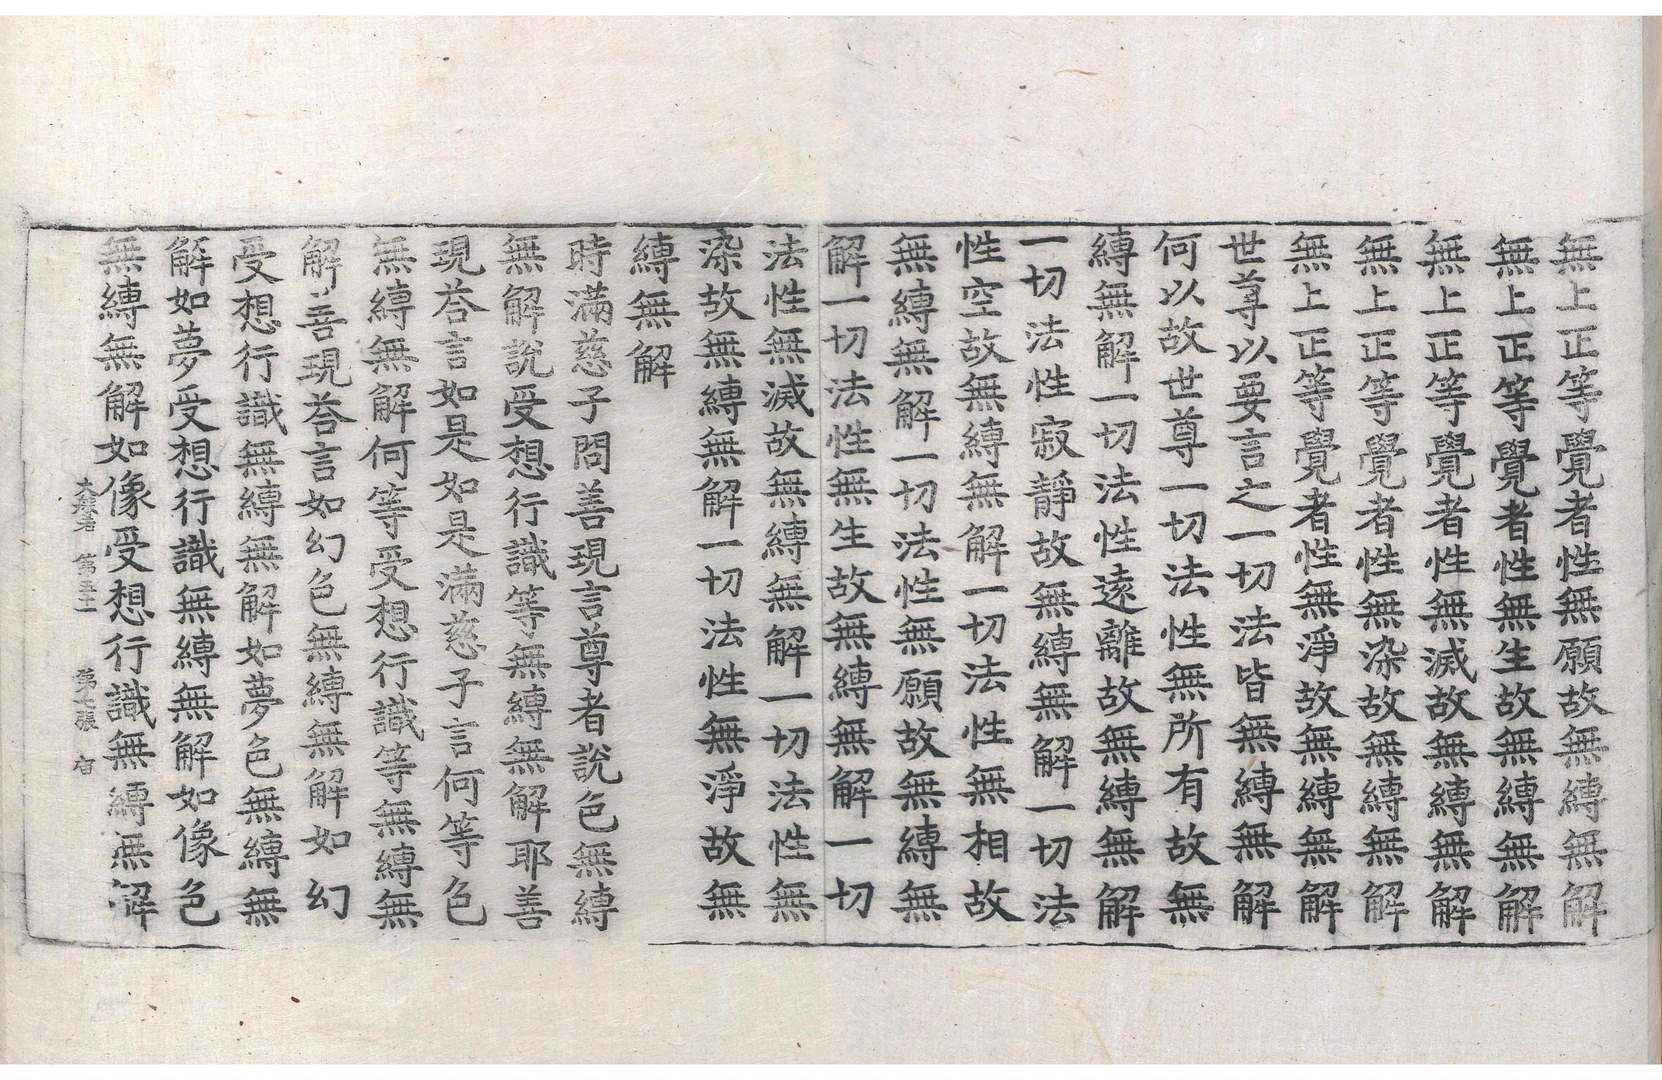 無上正等覺者性無願故無縛無解
無上正等覺者性無生故無縛無解
無上正等覺者性無滅故無縛無解
無上正等覺者性無染故無縛無解
無上正等覺者性無淨故無縛無解
世尊以要言之一切法皆無縛無解
何以故世尊一切法性無所有故無
縛無解一切法性遠離故無縛無解
一切法性寂靜故無縛無解一切法
性空故無縛無解一切法性無相故
無縛無解一切法性無願故無縛無
解一切法性無生故無縛無解一切
法性無滅故無縛無解一切法性無
染故無縛無解一切法性無淨故無
縛無解
時滿慈子問善現言尊者說色無縛
無解說受想行識等無縛無解耶善
現荅言如是如是滿慈子言何等色
無縛無解何等受想行識等無縛無
解善現荅言如幻色無縛無解如幻
受想行識無縛無解如夢色無縛無
解如夢受想行識無縛無解如像色
無縛無解如像受想行識無縛無解
大般若 第五十 第七張 宙